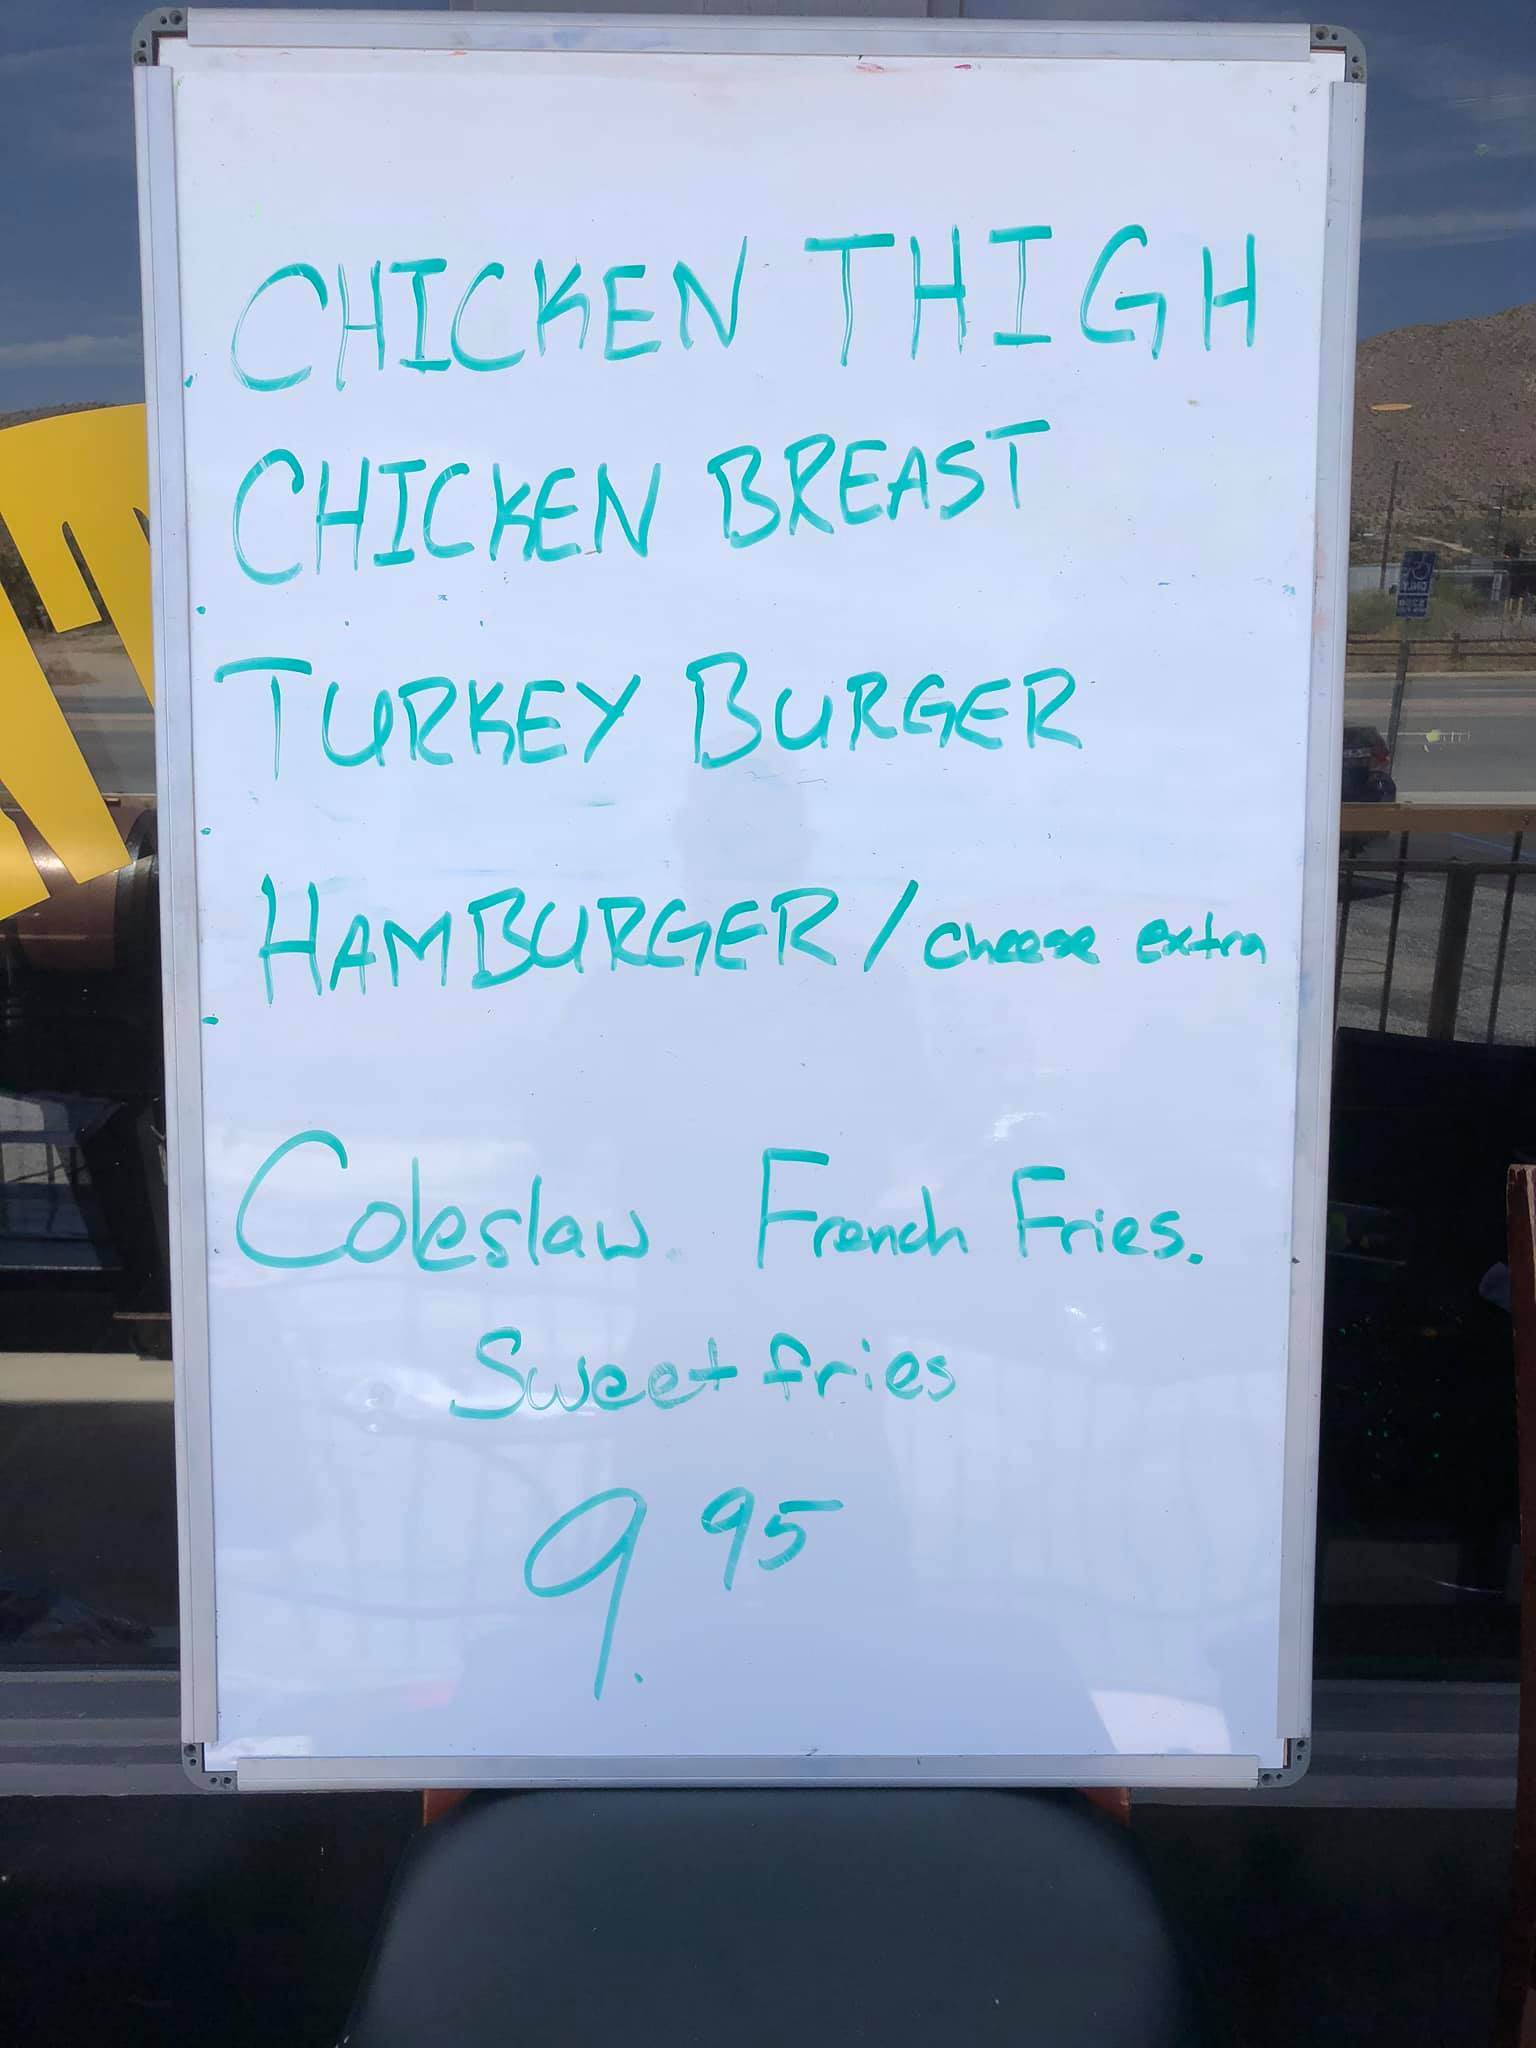 CHICKEN THIGH
CHICKEN BREAST
TURKEY BURGER
HAMBURGER / cheese extra
Coleslaw French Fries.
Sweet fries
9.95